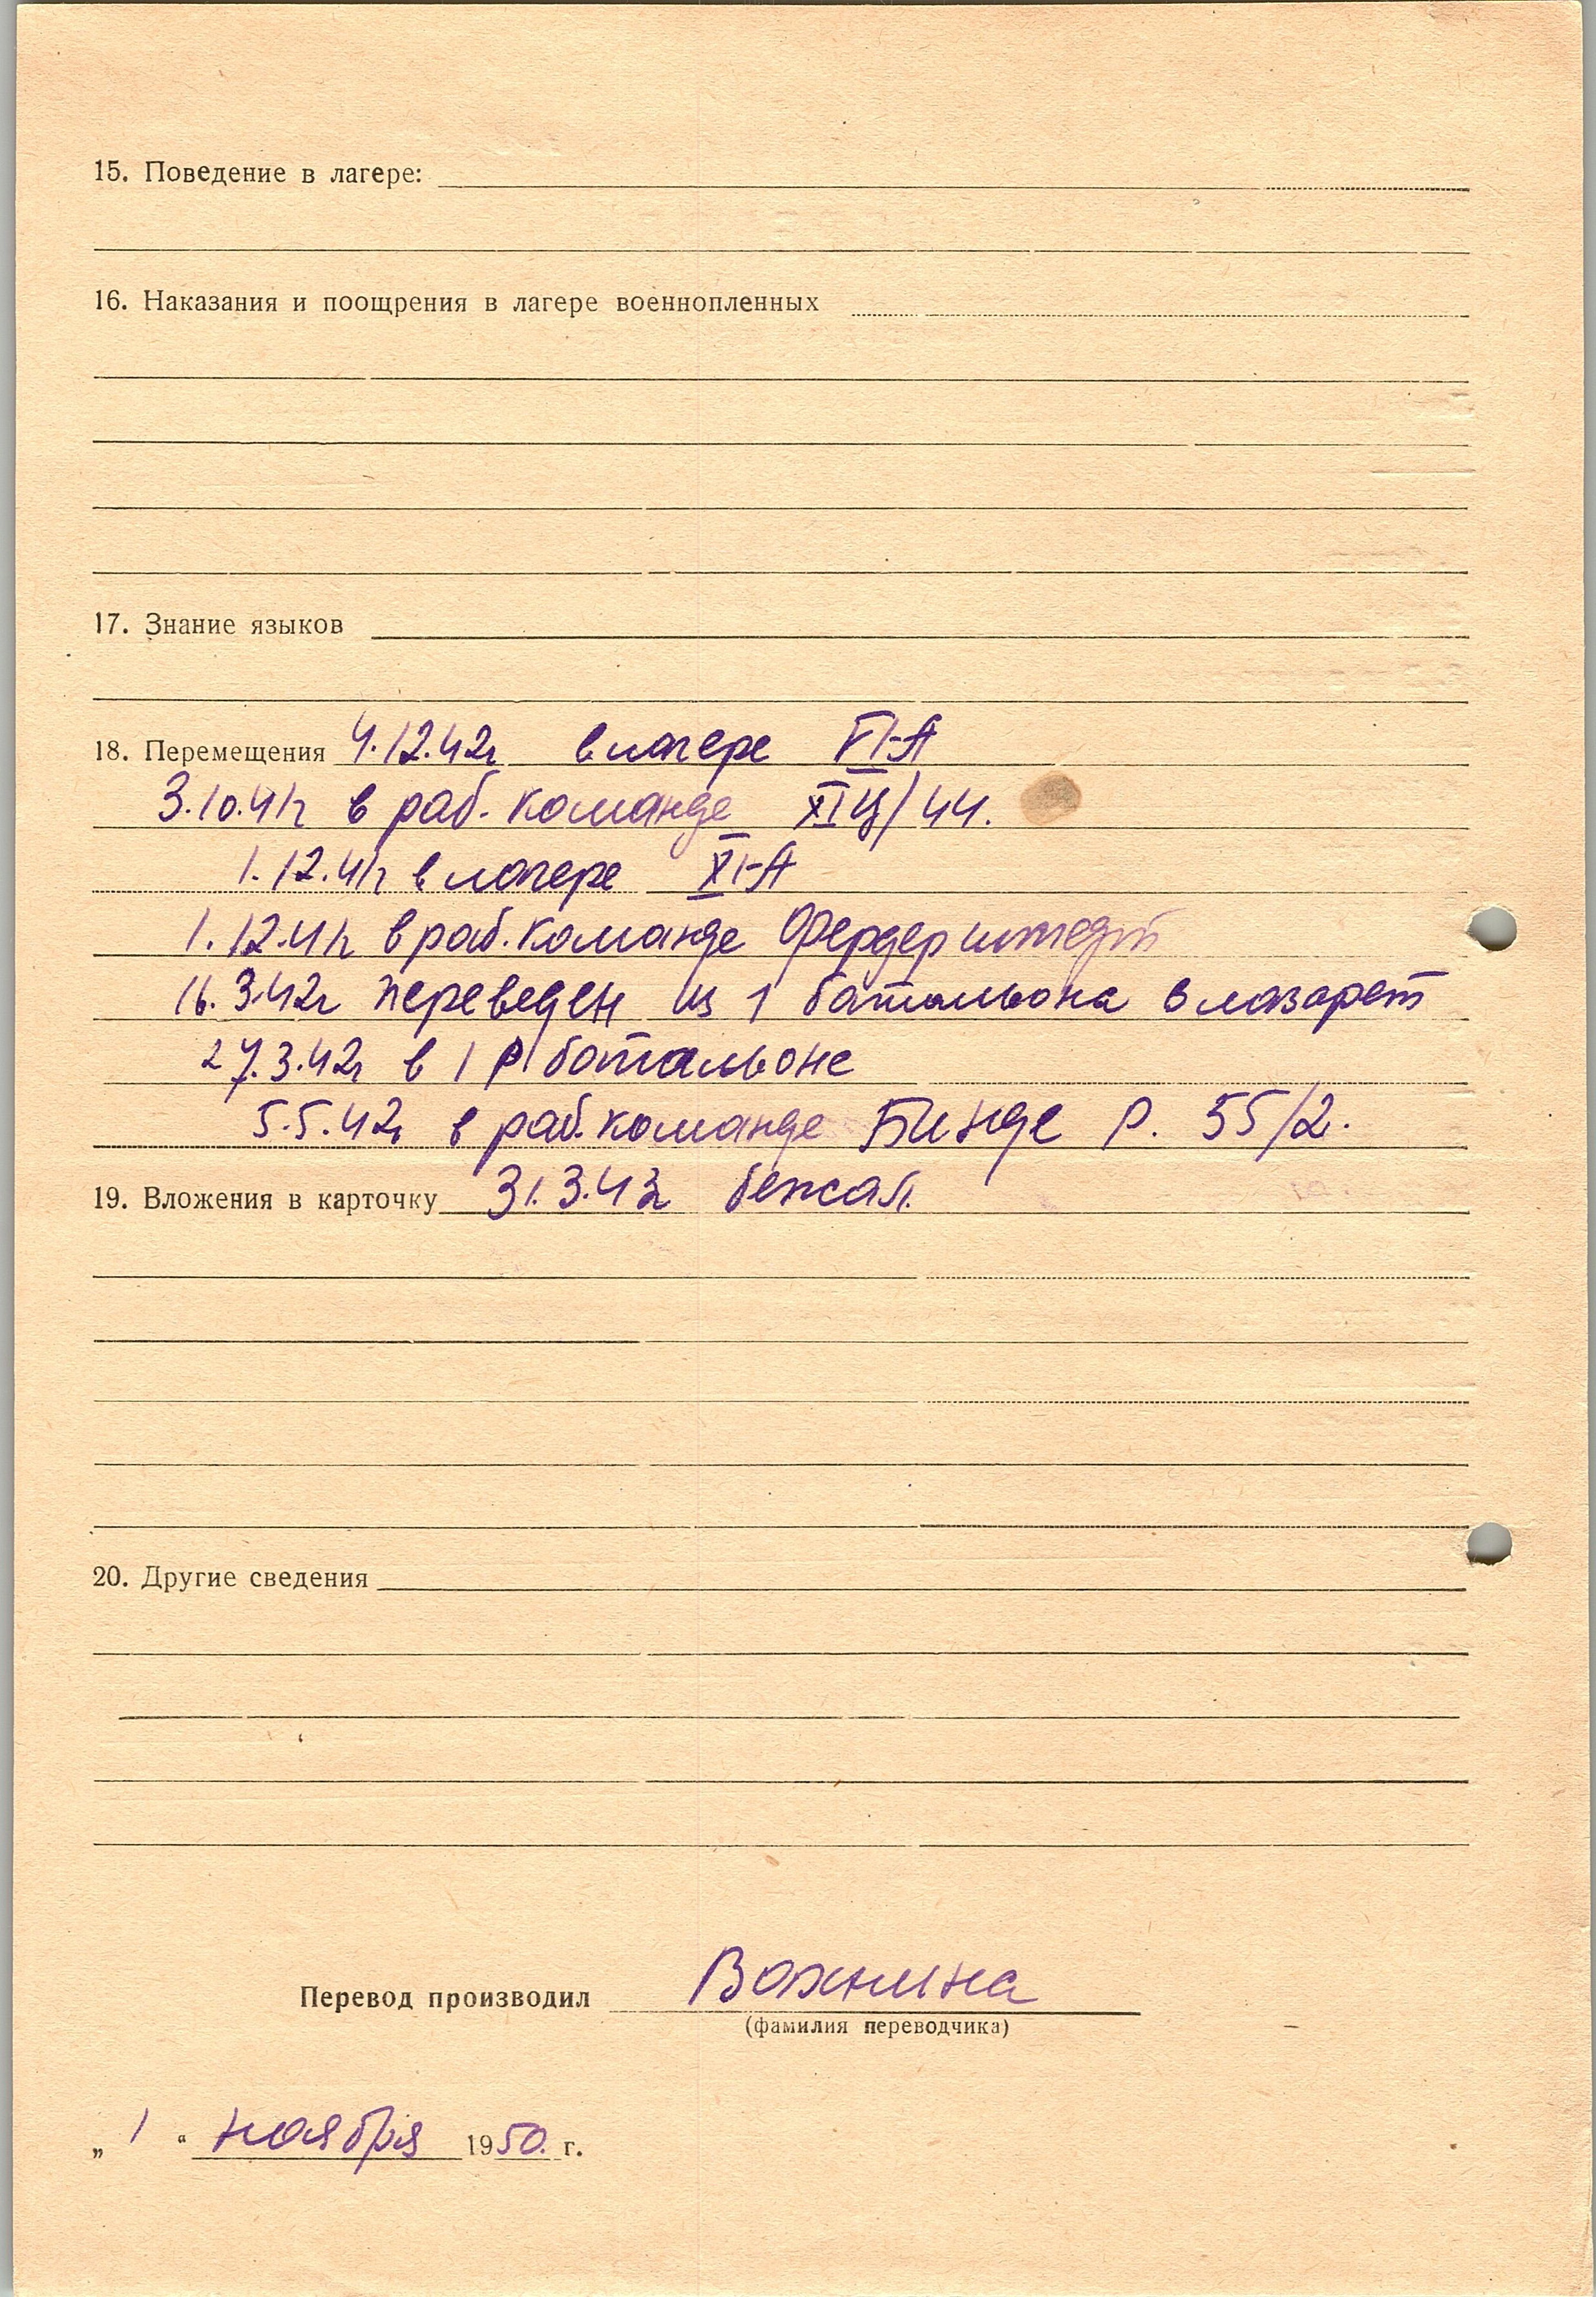 15. Поведение в лагере:
16. Наказания и поощрения в лагере военнопленных
17. Знание языков
18. Перемещения 4.12.42г в лагере VI-А
3.10.41г в раб. команде XIЦ/44.
1.12.41г в лагере XI-А
1.12.41г в раб. команде Фердерштедт
16.3.42г переведен из 1 батальона в лазарет
27.3.42г в 1 Р батальоне
5.5.42г в раб. команде Бинде Р. 55/2.
19. Вложения в карточку 31.3.43г бежал.
20. Другие сведения
Перевод производил Важнина
(фамилия переводчика)
„ 1 “ ноября 1950. г.